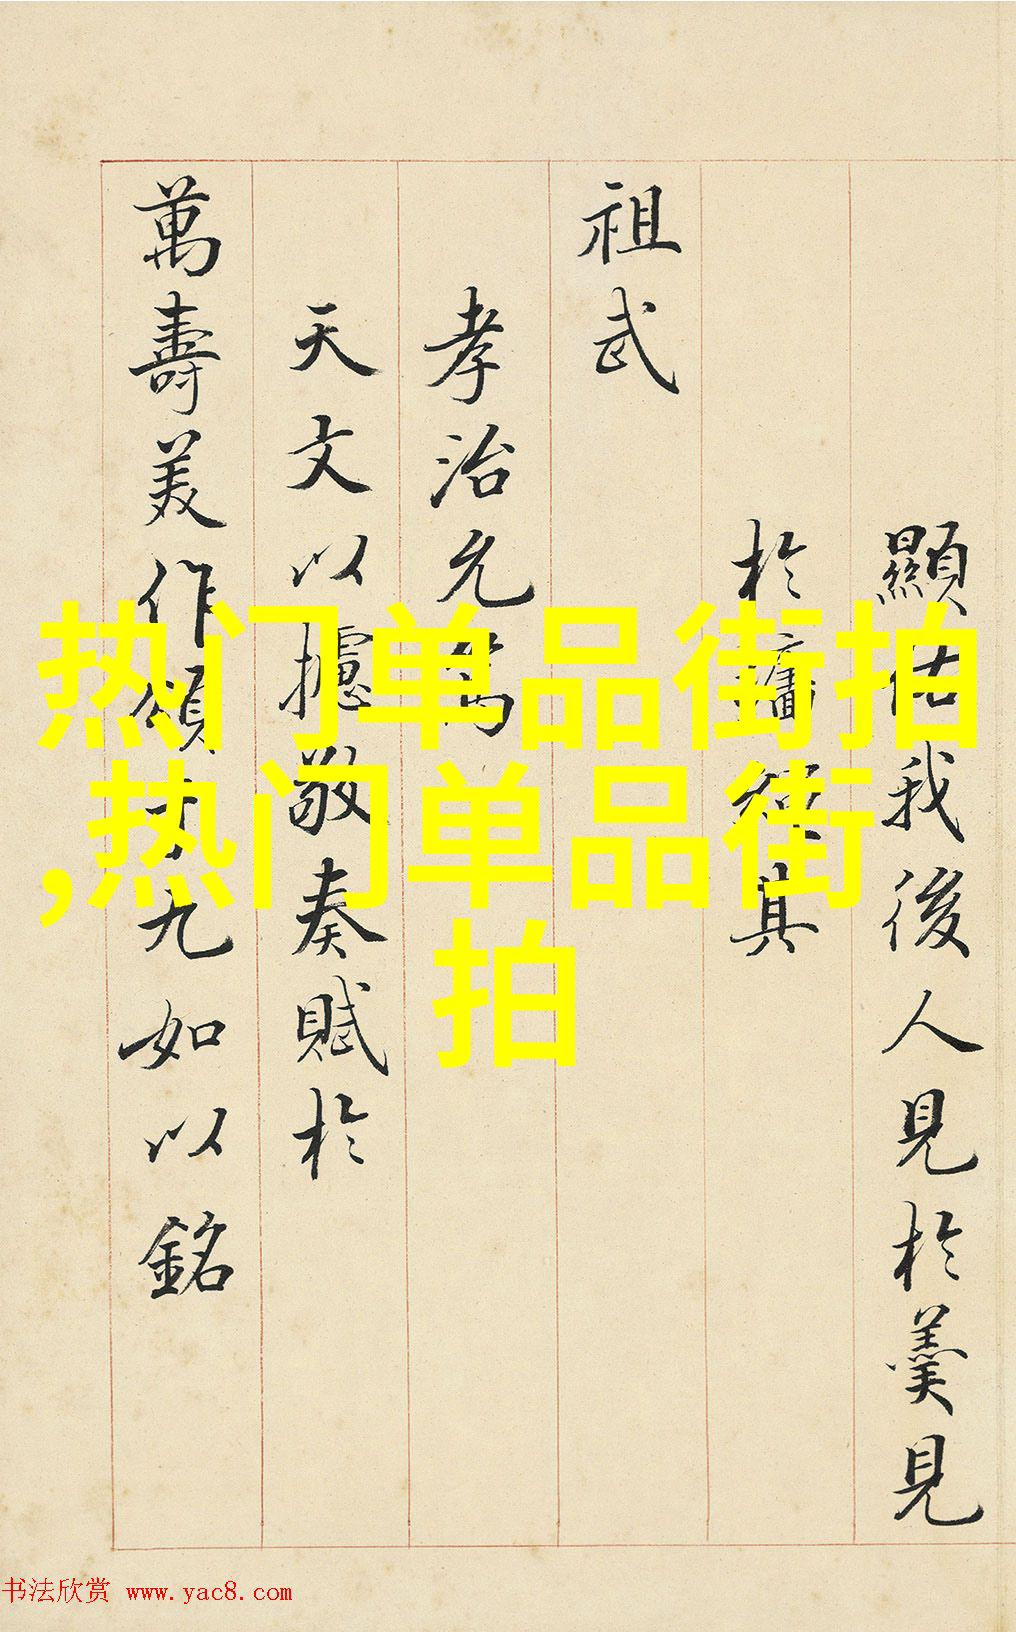 顯佑我後人見於羹見
於牆繩其
祖武
孝治允為
天文以攄敬奏賦於
萬壽美作頌十九如以銘
热门单品街拍
,热门单品街
拍
书法欣赏 www.yac8.com